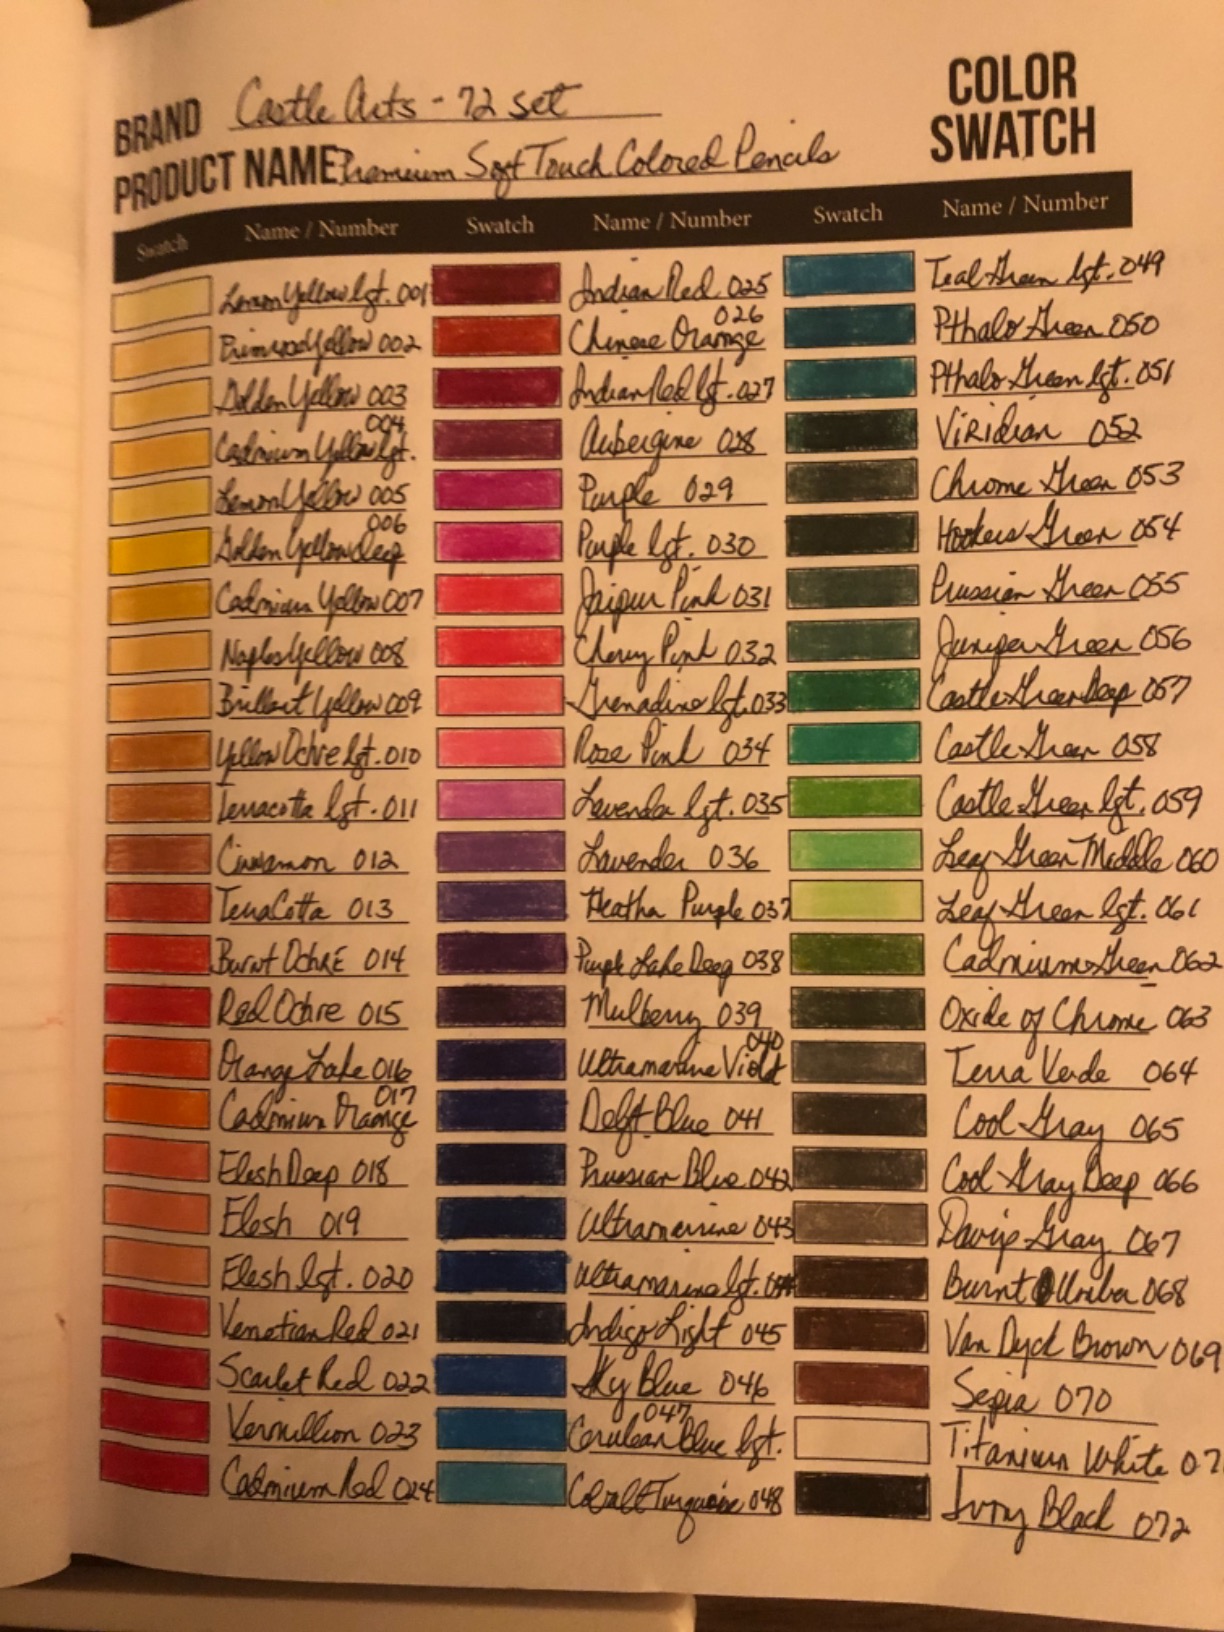 BRAND Castle Arts - 72 set
PRODUCT NAME Premium Soft Touch Colored Pencils
COLOR
SWATCH
Swatch Name / Number Swatch Name / Number Swatch Name / Number
Lemon Yellow lgt. 001
Primrose Yellow 002
Golden Yellow 003
Cadmium Yellow lgt. 004
Lemon Yellow 005
Golden Yellow deep 006
Cadmium Yellow 007
Naples Yellow 008
Brilliant Yellow 009
Yellow Ochre lgt. 010
Terracotta lgt. 011
Cinnamon 012
TerraCotta 013
Burnt OchRE 014
Red Ochre 015
Orange Lake 016
Cadmium Orange 017
Flesh Deep 018
Flesh 019
Flesh lgt. 020
Venetian Red 021
Scarlet Red 022
Vermillion 023
Cadmium Red 024
Indian Red 025
Chinese Orange 026
Indian Red lgt. 027
Aubergine 028
Purple 029
Purple lgt. 030
Jaipur Pink 031
Cherry Pink 032
Grenadine lgt. 033
Rose Pink 034
Lavender lgt. 035
Lavender 036
Heather Purple 037
Purple Lake Deep 038
Mulberry 039
Ultramarine Violet 040
Delft Blue 041
Prussian Blue 042
Ultramarine 043
Ultramarine lgt. 044
Indigo Light 045
Sky Blue 046
Cerulean Blue lgt. 047
Cobalt Turquoise 048
Teal Green lgt. 049
Pthalo Green 050
Pthalo Green lgt. 051
ViRidian 052
Chrome Green 053
Hookers Green 054
Prussian Green 055
Juniper Green 056
Castle Green Deep 057
Castle Green 058
Castle Green lgt. 059
Leaf Green Middle 060
Leaf Green lgt. 061
Cadmium Green 062
Oxide of Chrome 063
Terra Verde 064
Cool Gray 065
Cool Gray Deep 066
Davys Gray 067
Burnt Umber 068
Van Dyck Brown 069
Sepia 070
Titanium White 071
Ivory Black 072